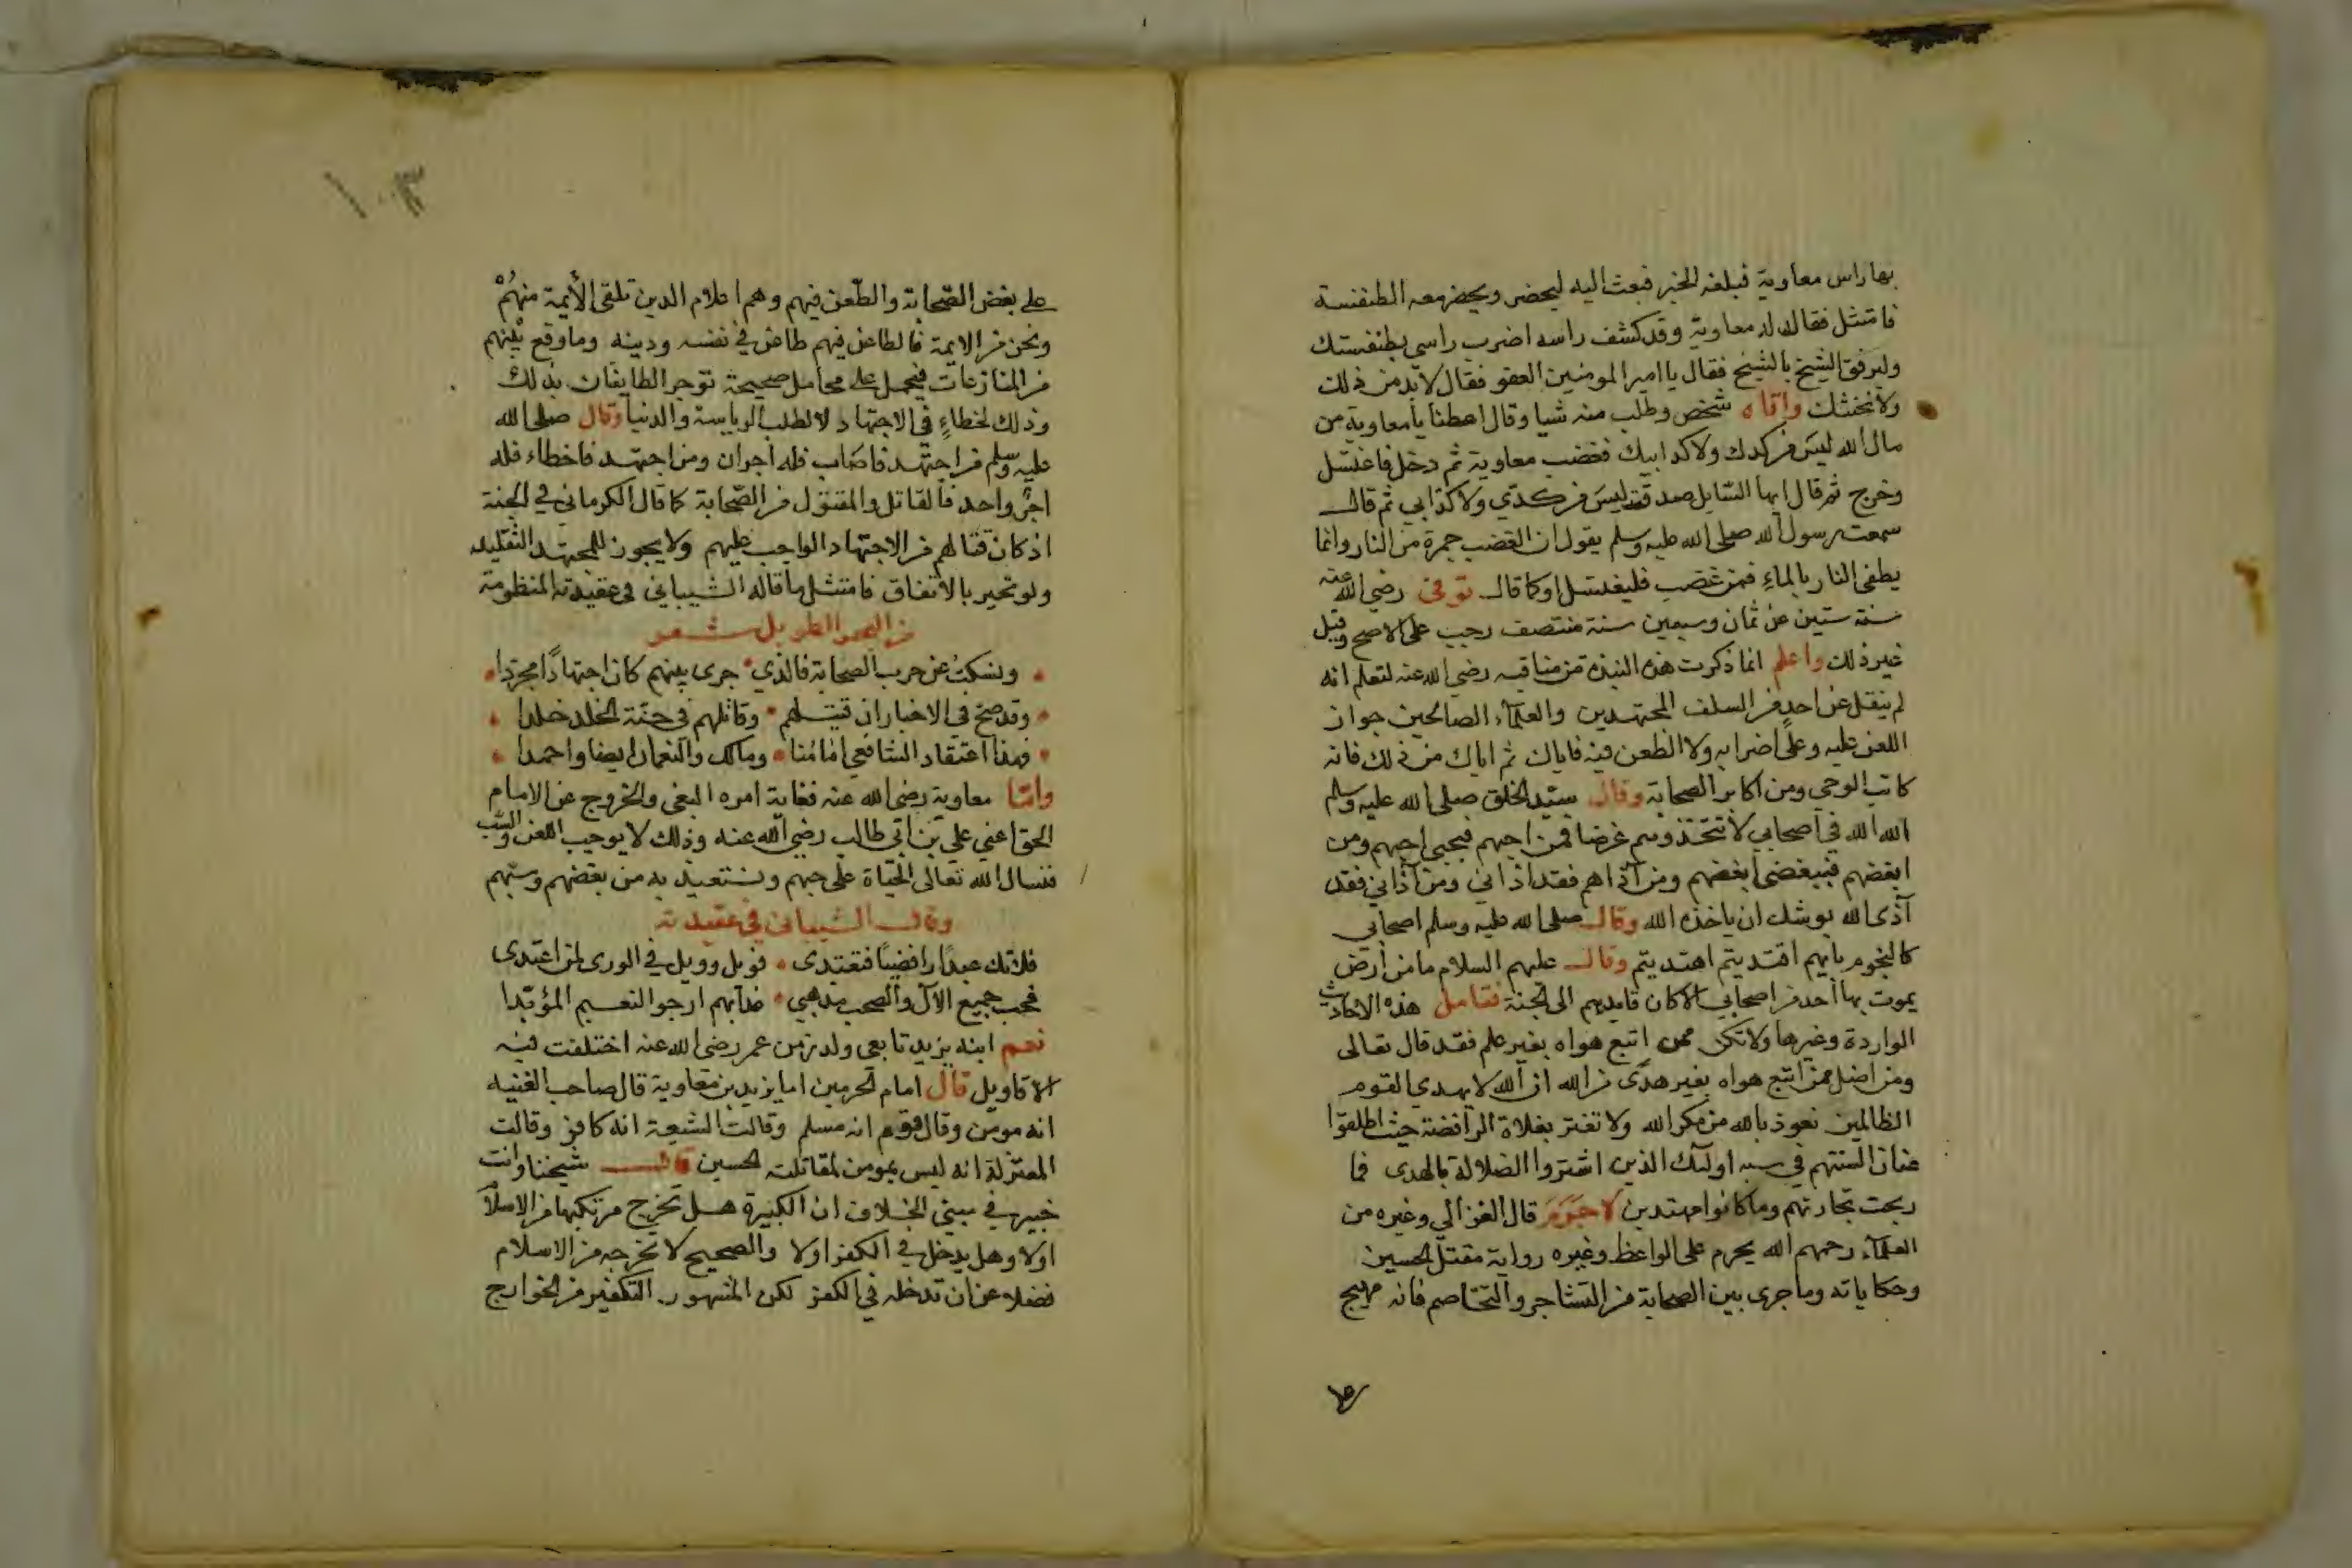 بها راس معاوية فبلغه الخبر فبعث اليه ليحضر ويحضر معه الطنفسة
فامتثل فقال له معاوية وقد كشف راسه اضرب راسي بطنفستك
وليرفق الشيخ بالشيخ فقال يا امير المومنين العفو فقال لا بد من ذلك
ولا نخنثك واتاه شخص وطلب منه شيا وقال اعطنا يا معاوية من
مال الله ليس من كدك ولا كد ابيك فغضب معاوية ثم دخل فاغتسل
وخرج ثم قال ايها السايل صدقت ليس من كدي ولا كد ابي ثم قال
سمعت رسول الله صلى الله عليه وسلم يقول ان الغضب جمرة من النار وانما
يطفى النار بالماء فمن غضب فليغتسل او كما قال توفى رضي الله عنه
سنة ستين عن ثمان وسبعين سنة منتصف رجب على الاصح وقيل
غير ذلك واعلم انما ذكرت هذه النبذة من مناقبه رضي الله عنه لتعلم انه
لم ينقل عن احد من السلف المجتهدين والعلمآء الصالحين جواز
اللعن عليه وعلى اضرابه ولا الطعن فيه فاياك ثم اياك من ذلك فانه
كاتب الوحي ومن اكابر الصحابة وقال سيد الخلق صلى الله عليه وسلم
الله الله في اصحابي لا تتخذوهم غرضا فمن احبهم فبحبي احبهم ومن
ابغضهم فببغضي ابغضهم ومن آذاهم فقد اذاني ومن آذاني فقد
آذى الله يوشك ان ياخذه الله وقال صلى الله عليه وسلم اصحابي
كالنجوم بايهم اقتديتم اهتديتم وقال عليهم السلام ما من ارض
يموت بها احد من اصحابي الا كان قايدهم الى الجنة فتامل هذه الاحاديث
الواردة وغيرها ولا تكن ممن اتبع هواه بغير علم فقد قال تعالى
ومن اضل ممن اتبع هواه بغير هدى من الله ان الله لا يهدي القوم
الظالمين نعوذ بالله من مكر الله ولا تغتر بغلاة الرافضة حيث اطلقوا
عنان السنتهم في سبه اوليك الذين اشتروا الضلالة بالهدى فما
ربحت تجارتهم وما كانوا مهتدين لا جرم قال الغزالي وغيره من
العلمآء رحمهم الله يحرم على الواعظ وغيره رواية مقتل الحسين
وحكاياته وما جرى بين الصحابة من التشاجر والتخاصم فانه مهيج
على بغض الصحابة والطعن فيهم وهم اعلام الدين تلقى الأيمة منهم
ونحن من الايمة فالطاعن فيهم طاعن في نفسه ودينه وما وقع بينهم
من المنازعات فيحمل على محامل صحيحة توجر الطايفان بذلك
وذلك لخطاءٍ في الاجتهاد لا لطلب الرياسة والدنيا وقال صلى الله
عليه وسلم من اجتهد فاصاب فله اجران ومن اجتهد فاخطاء فله
اجر واحد فالقاتل والمقتول من الصحابة كما قال الكرماني في الجنة
اذ كان قتالهم من الاجتهاد الواجب عليهم ولا يجوز للمجتهد التقليد
ولو تحير بالاتفاق فامتثل ما قاله الشيباني في عقيدته المنظومة
من البحر الطويل شعر
ونسكت عن حرب الصحابة فالذي جرى بينهم كان اجتهادًا مجردا
وقد صح في الاخبار ان قتيلهم وقاتلهم في جنة الخلد خلدا
فهذا اعتقاد الشافعي امامنا ومالك والنعمان ايضا واحمدا
واما معاوية رضي الله عنه فغاية امره البغي والخروج عن الامام
الحق اعني علي بن ابي طالب رضي الله عنه وذلك لا يوجب اللعن والسب
فنسال الله تعالى الحياة على حبهم ونستعيذ به من بغضهم وسبهم
وقال الشيباني في عقيدته
فلا تك عبدًا رافضيًا فتعتدى فويل وويل في الورى لمن اعتدى
فحب جميع الآل والصحب مذهبي غدا بهم ارجو النعيم المؤبدا
نعم ابنه يزيد تابعي ولد زمن عمر رضي الله عنه اختلفت فيه
الاقاويل قال امام الحرمين اما يزيد بن معاوية قال صاحب الغنيه
انه مومن وقال قوم انه مسلم وقالت الشيعة انه كافر وقالت
المعتزلة انه ليس بمومن لمقاتلته الحسين قال شيخنا وانت
خبير في مبني الخلاف ان الكبيرة هل تخرج مرتكبها من الاسلام
اولا وهل يدخل في الكفر اولا والصحيح لا تخرجه من الاسلام
فضلا عن ان تدخله في الكفر لكن المشهور التكفير من الخوارج